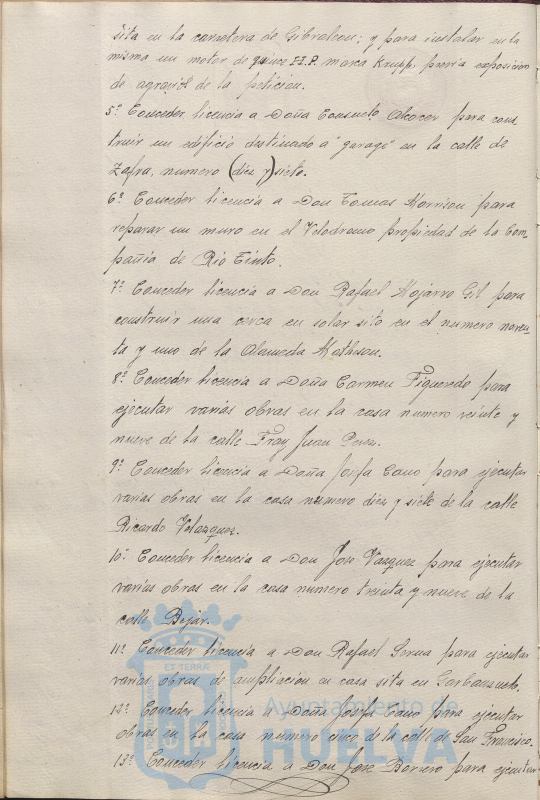 sita en la carretera de Gibraleon; y para instalar en la
misma un motor de quince H.P. marca Krupp, previa exposicion
de agravios de la peticion.
5º Conceder licencia a Doña Consuelo Alcocer para cons
truir un edificio destinado a "garage" en la calle de
Zafra, numero (diez y) siete.
6º Conceder licencia a Don Tomas Morrison para
reparar un muro en el Velodromo propiedad de la Com-
pañia de Rio Tinto.
7º Conceder licencia a Don Rafael Mojarro Gil para
construir una cerca en solar sito en el numero noven-
ta y uno de la Alameda Matheson.
8º Conceder licencia a Doña Carmen Figueredo para
ejecutar varias obras en la casa numero veinte y
nueve de la calle Fray Juan Perez.
9º Conceder licencia a Doña Josefa Cano para ejecutar
varias obras en la casa numero diez y siete de la calle
Ricardo Velazquez.
10º Conceder licencia a Don Jose Vazquez para ejecutar
varias obras en la casa numero treinta y nueve de la
calle Bejar.
11º Conceder licencia a Don Rafael Serna para ejecutar
varias obras de ampliacion en casa sita en
12º Conceder licencia a Doña Josefa Cano para ejecutar
obras en la casa numero cinco de la calle de San Francisco.
13º Conceder licencia a Don Jose Borrero para ejecutar
ET TERRÆ
Ayuntamiento de
HUELVA